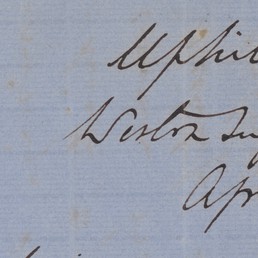 Uphil
Weston Su
Apr